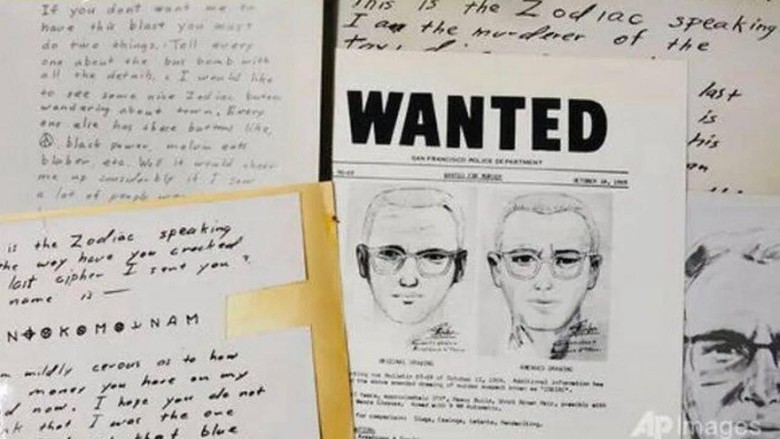 If you dont want me to
have this blast you must
do two things. Tell every
one about the bus bomb with
all the details. I would like
to see some nice Zodiac butons
wandering about town. Every
one else has these buttons like,
black power, melvin eats
bluber, etc. Well it would cheer
me up considerbly if I saw
a lot of people
This is the Zodiac speaking
I am the murderer of the
last
is
his
WANTED
SAN FRANCISCO POLICE DEPARTMENT
WANTED FOR MURDER
OCTOBER 18, 1969
ORIGINAL DRAWING
AMENDED DRAWING
of October 13, 1969. Additional information has
the above amended drawing of murder suspect known as "ZODIAC".
Heavy Build, Short Brown Hair, possibly with
For comparison: Slugs, Casings, Latents, Handwriting.
is the Zodiac speaking
the way have you cracked
last cipher I sent you?
name is —
mildly cerous as to how
money you have on my
now. I hope you do not
that I was the one
that blue
AP Images